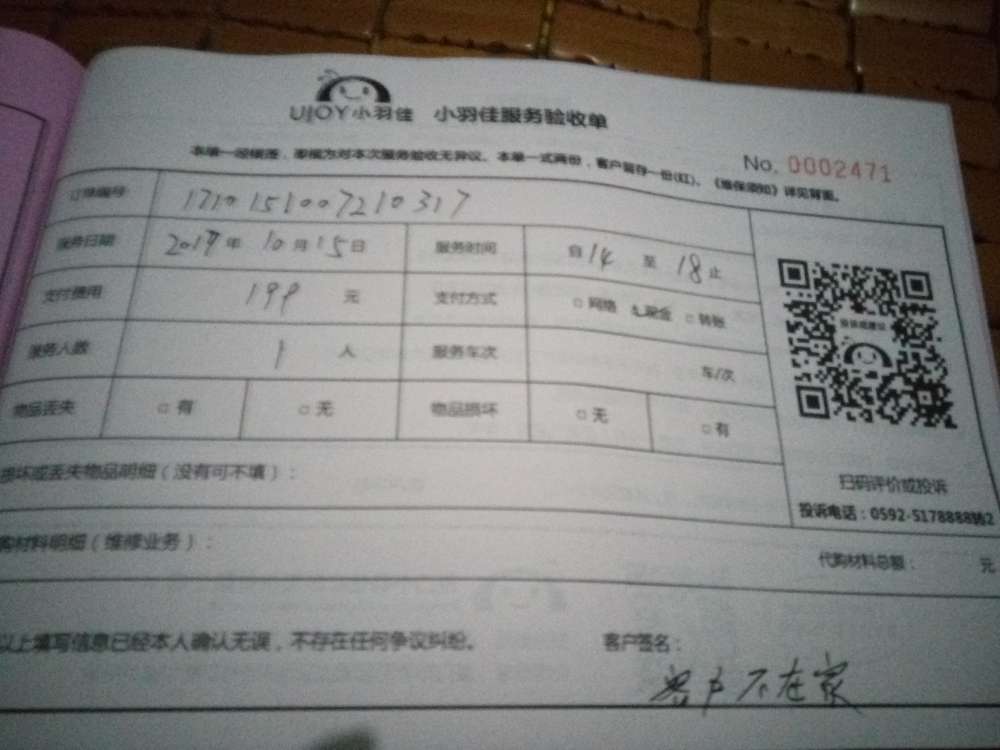 UJOY小羽佳 小羽佳服务验收单
No. 0002471
本单一经签签，即视为对本次服务验收无异议。本单一式两份，客户留存一份(红)。《维保须知》详见背面。
订单编号 1710151007210317
服务日期 2017年10月15日 服务时间 自14至18止
支付费用 199元 支付方式 □网络 □现金 □转账
服务人数 1人 服务车次 车/次
物品丢失 □有 □无 物品损坏 □无 □有
损坏或丢失物品明细（没有可不填）：
扫码评价或投诉
投诉电话：0592-5178888转2
购材料明细（维修业务）： 代购材料总额： 元
以上填写信息已经本人确认无误，不存在任何争议纠纷。 客户签名：
客户不在家